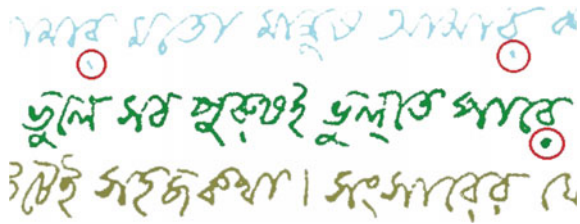 আমার মতো মানুষ আমার
ভুলে সব পুরুষই ভুলতে পারে
টেই সহজ কথা। সংসারের যে